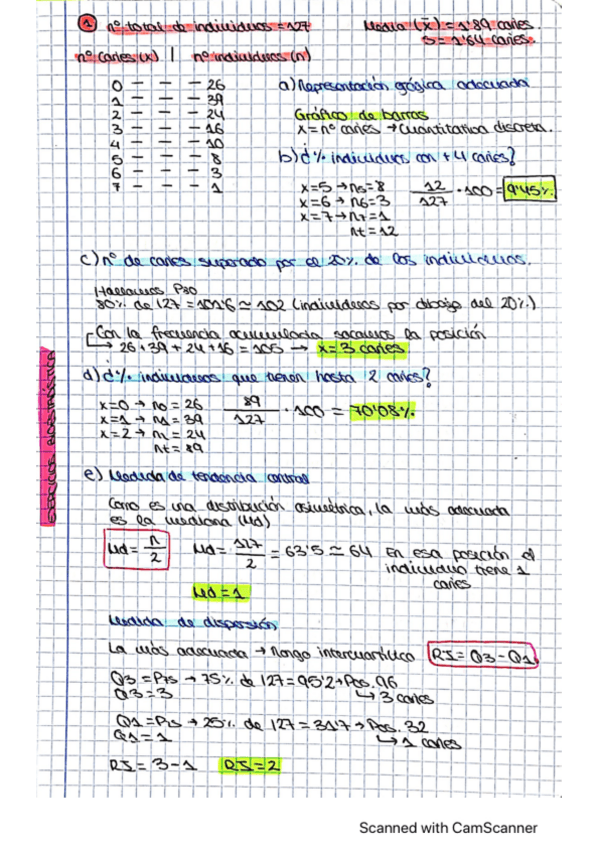 1 nº total de individuos = 127
Media (x̄) = 1'89 caries.
S = 1'64 caries.
nº caries (x) | nº individuos (n)
0 — — — 26
1 — — — 39
2 — — — 24
3 — — — 16
4 — — — 10
5 — — — 8
6 — — — 3
7 — — — 1
a) Representación gráfica adecuada
Gráfico de barras
x = nº caries → Cuantitativa discreta.
b) ¿% individuos con +4 caries?
x=5 → n5=8
x=6 → n6=3
x=7 → n7=1
nt = 12
12/127 · 100 = 9'45%
c) nº de caries superado por el 20% de los individuos.
Hallamos P80
80% de 127 = 101'6 ≃ 102 (individuos por debajo del 20%)
Con la frecuencia acumulada sacamos la posición
→ 26+39+24+16 = 105 → x=3 caries
d) ¿% individuos que tienen hasta 2 caries?
x=0 → n0 = 26
x=1 → n1 = 39
x=2 → n2 = 24
nt = 89
89/127 · 100 = 70'08%
e) Medida de tendencia central
Como es una distribución asimétrica, la más adecuada
es la mediana (Md)
Md = n/2
Md = 127/2 = 63'5 ≃ 64 En esa posición el
individuo tiene 1
caries
Md = 1
Medida de dispersión
La más adecuada → Rango intercuartílico RI = Q3 - Q1
Q3 = P75 → 75% de 127 = 95'2 → Pos. 96
Q3 = 3
↳ 3 caries
Q1 = P25 → 25% de 127 = 31'7 → Pos. 32
Q1 = 1
↳ 1 caries
RI = 3 - 1 RI = 2
Scanned with CamScanner